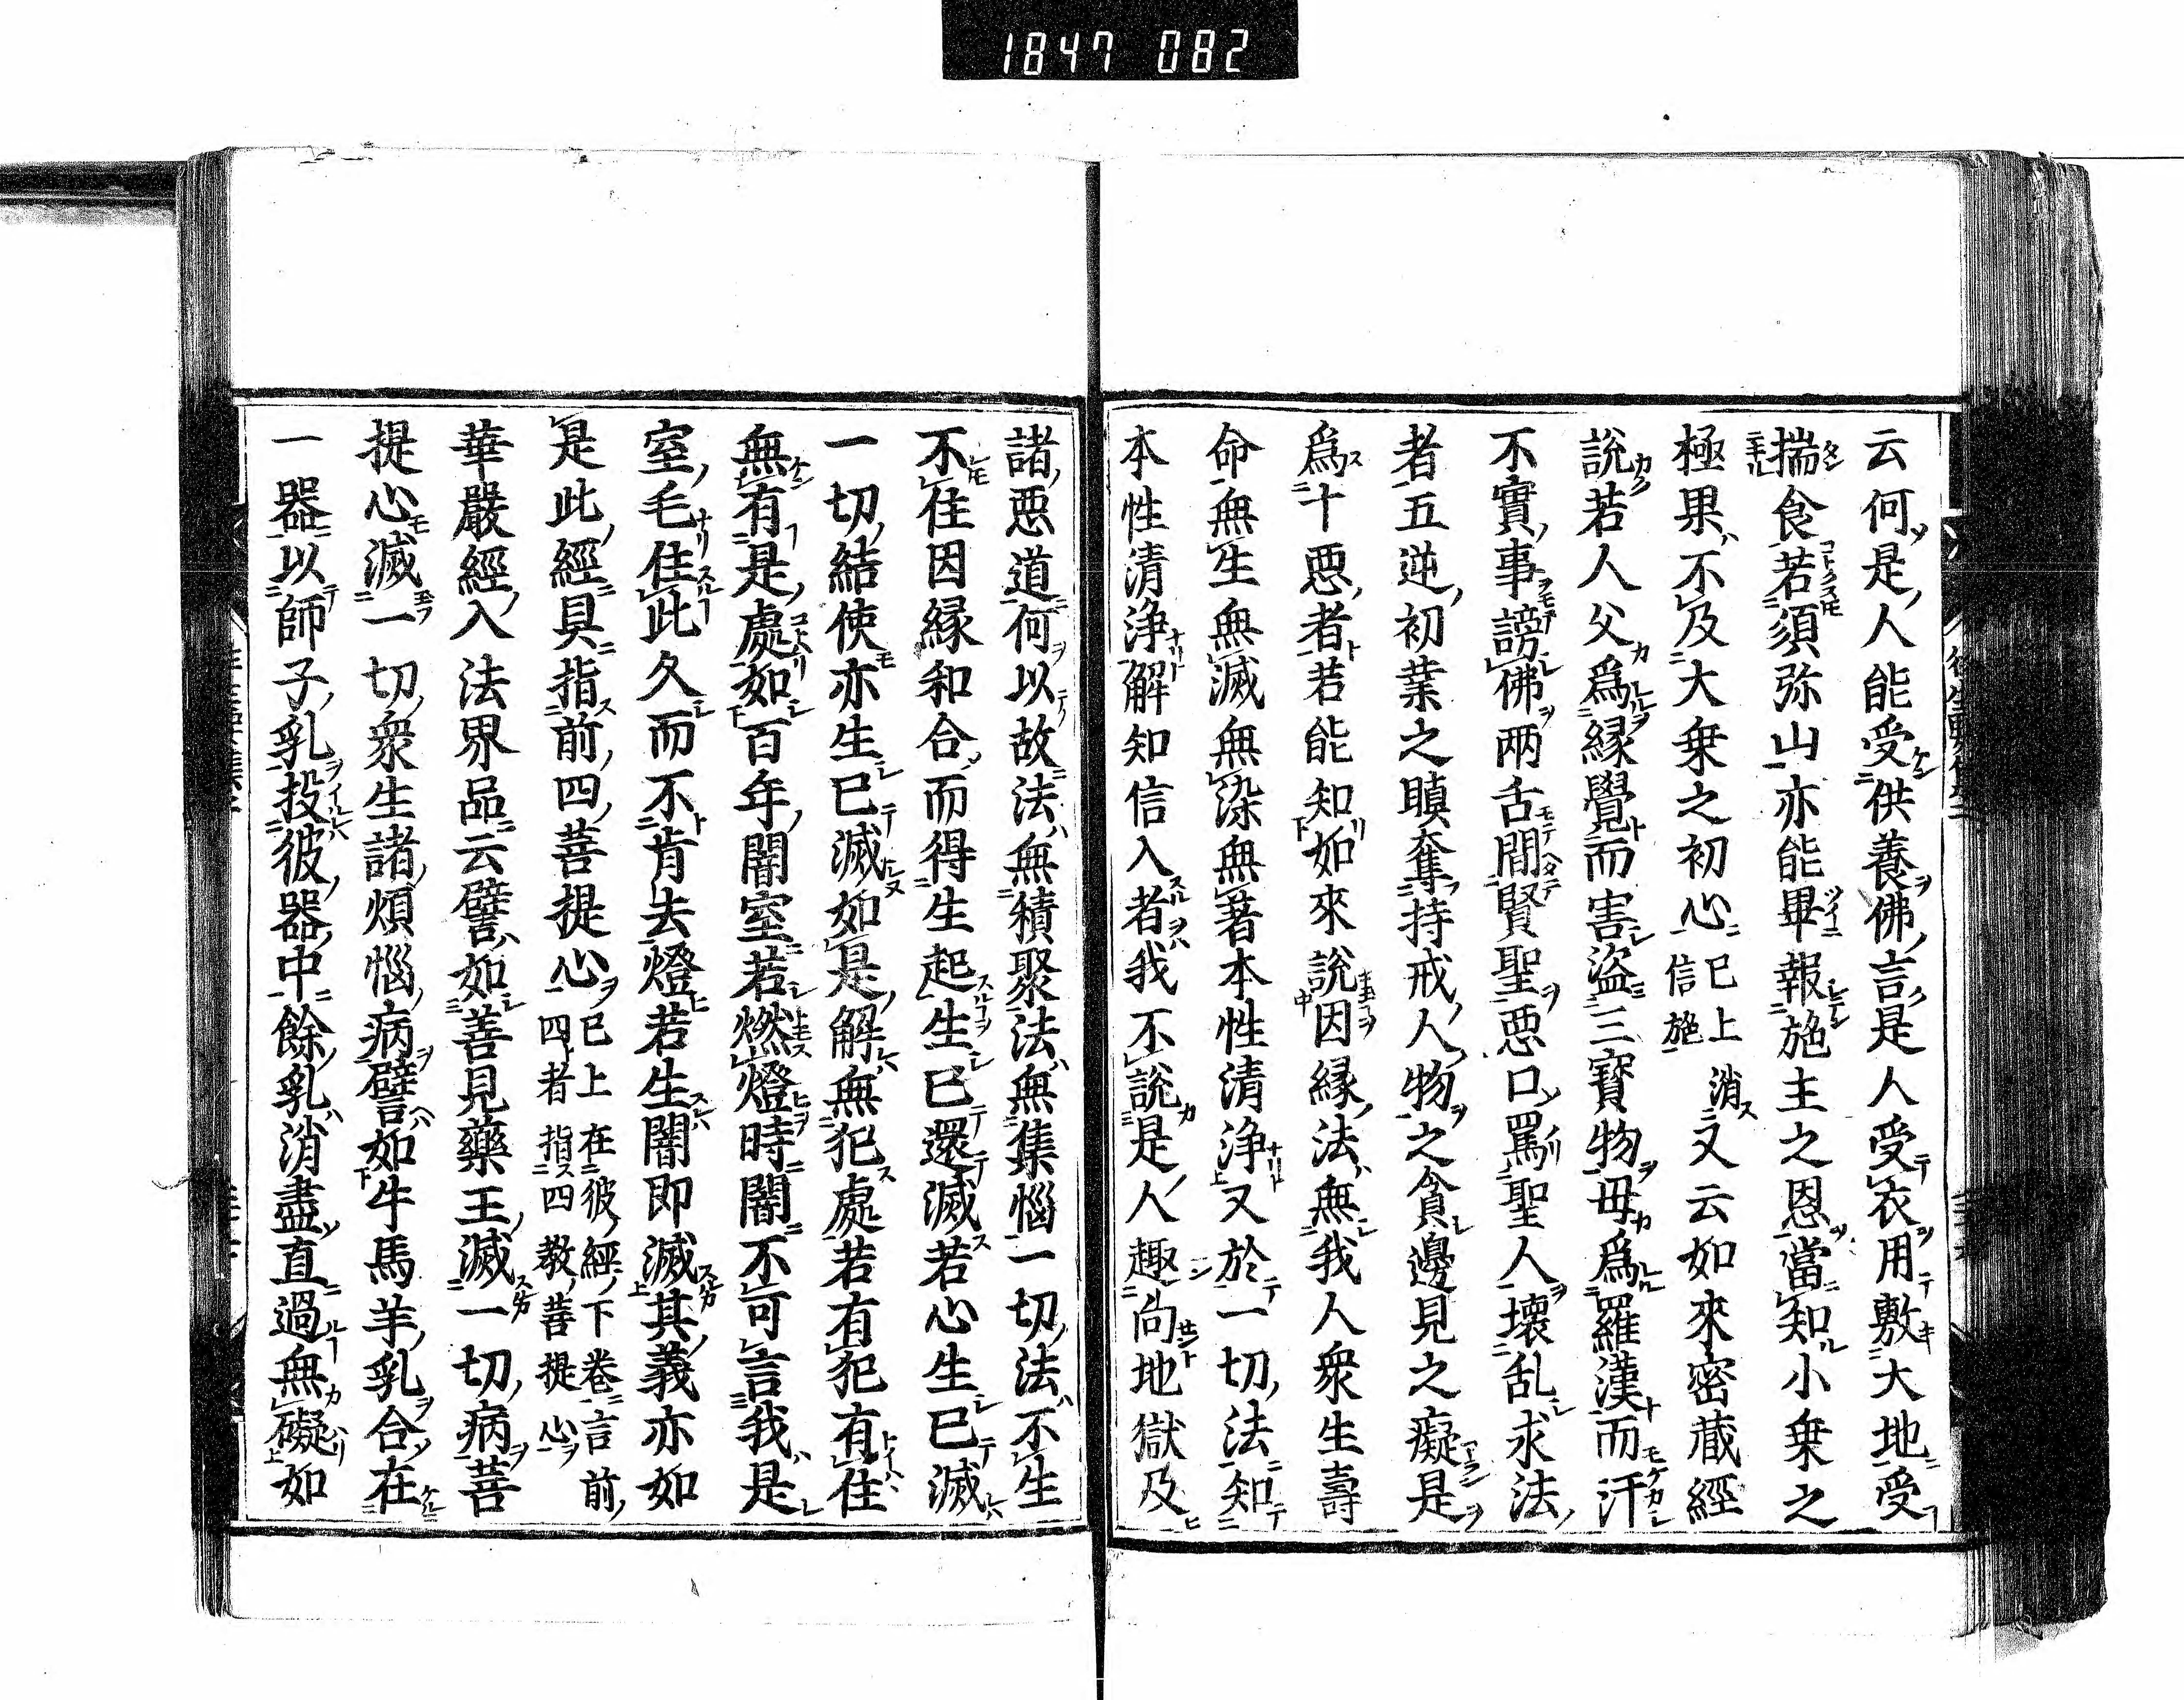 1847 082
云何是人能受供養佛言是人受衣用敷大地受
揣食若須弥山亦能畢報施主之恩當知小乗之
極果不及大乗之初心已上消信施又云如來密蔵經
說若人父爲縁覺而害盗三寳物母爲羅漢而汙
不實事謗佛兩舌間賢聖悪口罵聖人壞乱求法
者五逆初業之瞋奪持戒人物之貪邊見之癡是
爲十悪者若能知如來說因縁法無我人衆生壽
命無生無滅無染無著本性清浄又於一切法知
本性清浄解知信入者我不說是人趣向地獄及
諸悪道何以故法無積聚法無集惱一切法不生
不住因縁和合而得生起生已還滅若心生已滅
一切結使亦生已滅如是解無犯處若有犯有住
無有是處如百年闇室若燃燈時闇不可言我是
室主住此久而不肯去燈若生闇即滅其義亦如
是此經具指前四菩提心已上在彼經下卷言前四者指四教菩提心
華嚴經入法界品云譬如善見藥王滅一切病菩
提心滅一切衆生諸煩惱病譬如牛馬羊乳合在
一器以師子乳投彼器中餘乳消盡直過無礙如